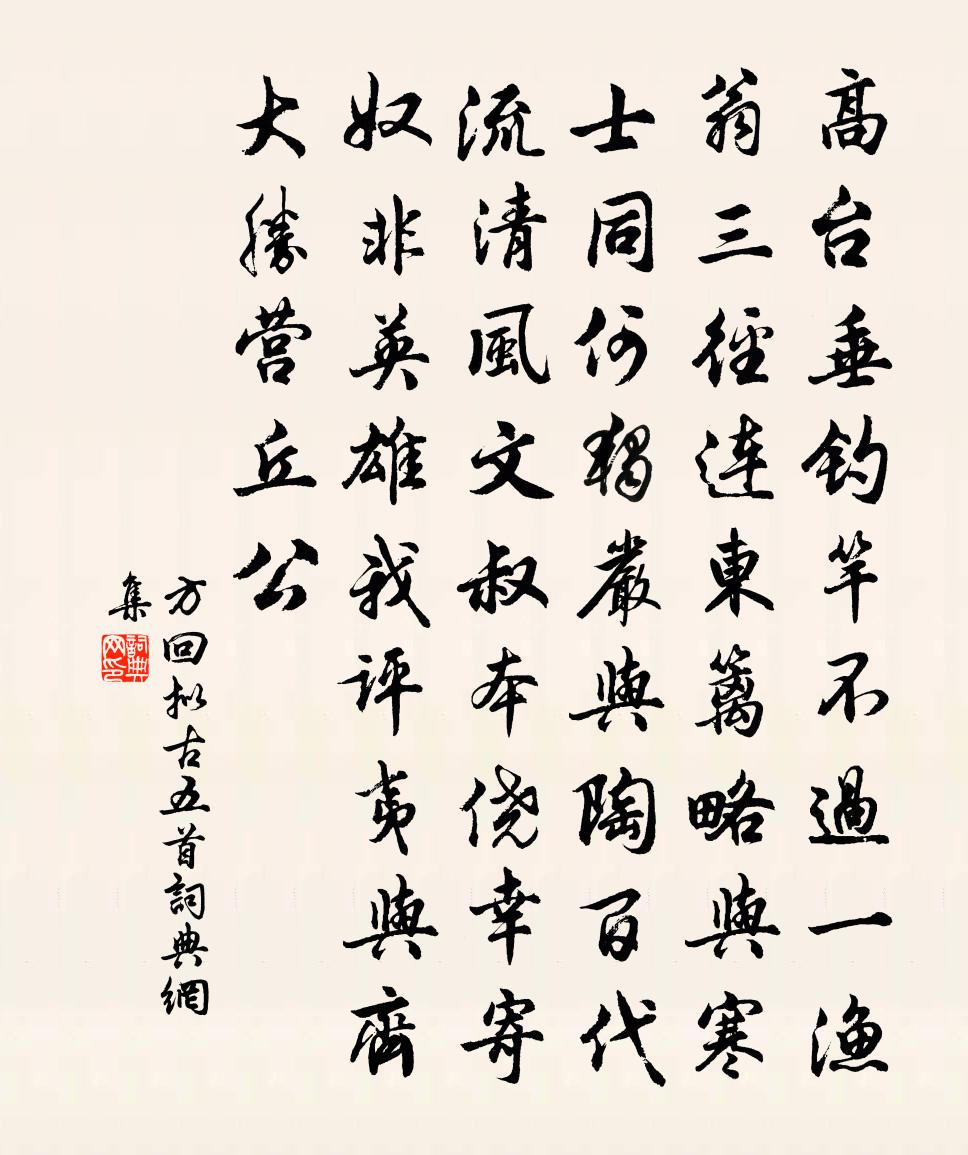 高台垂钓竿不過一漁
翁三徑連東篱略與寒
士同何独嚴與陶百代
流清風文叔本侥幸寄
奴非英雄我评夷與齊
大勝营丘公
方回拟古五首詞典網
集
詞典网印